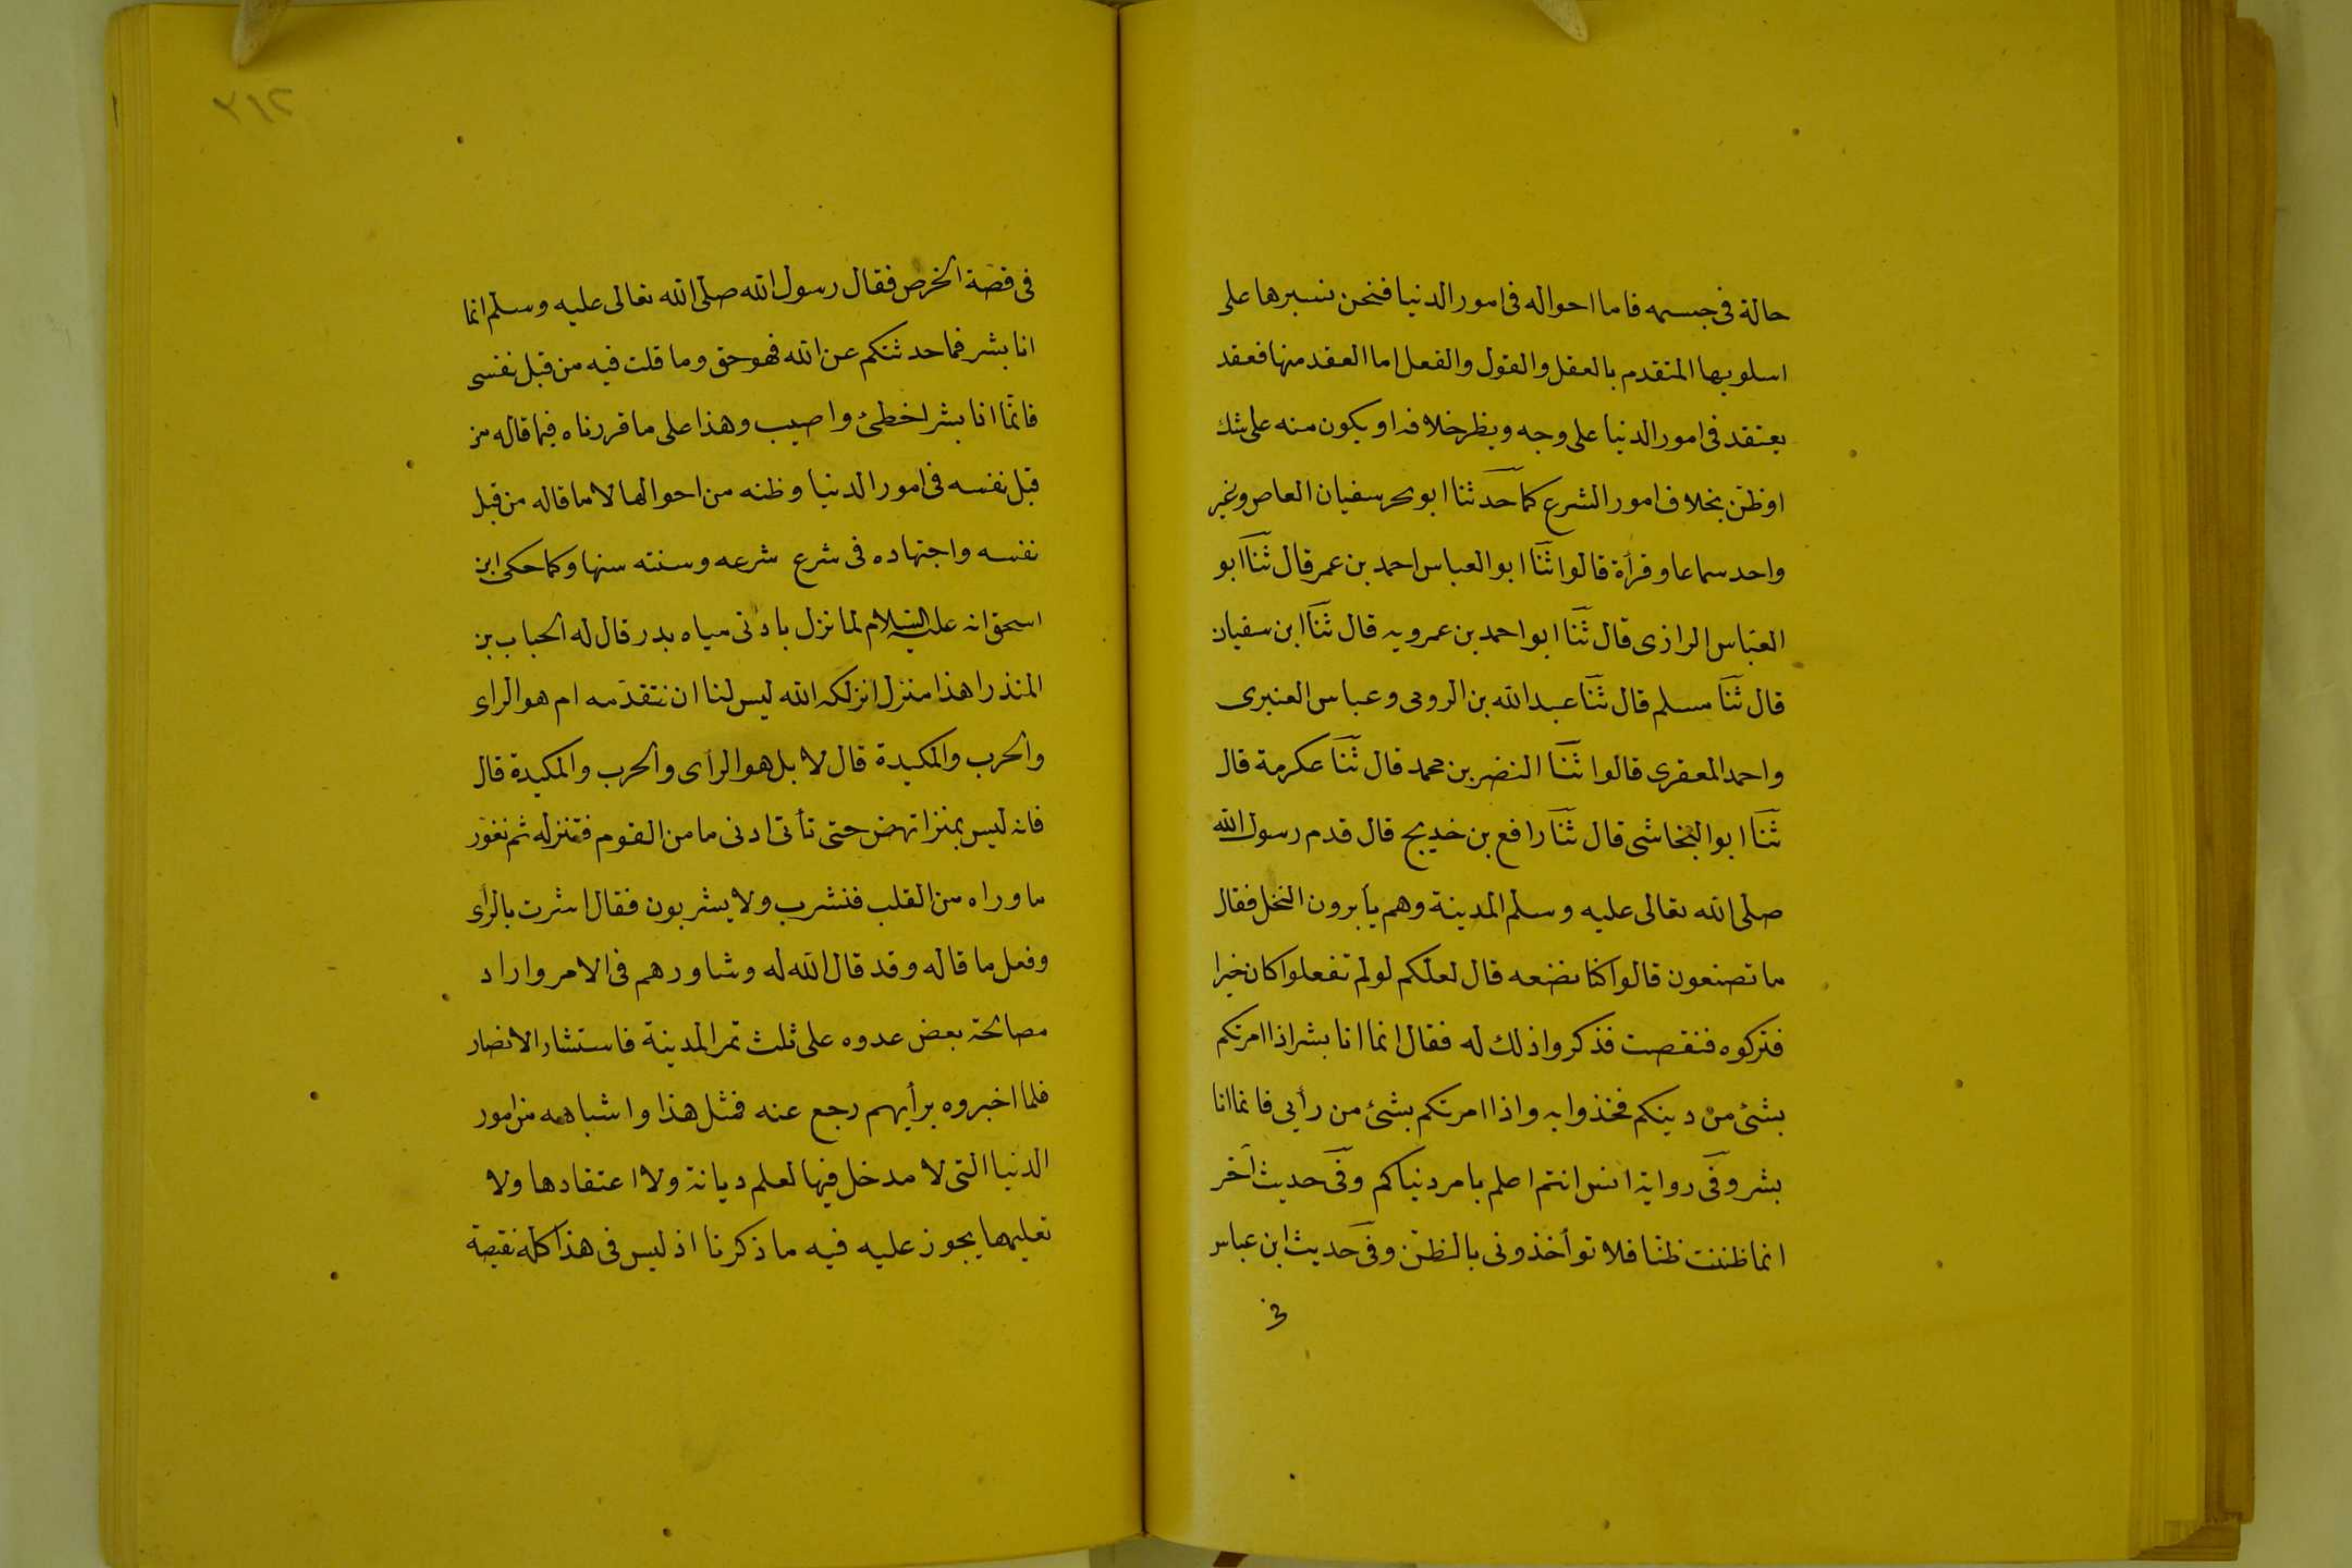 حالة فى جسمه فاما احواله فى امور الدنيا فنحن نسبرها على
اسلوبها المتقدم بالعقل والقول والفعل اما العقد منها فعقد
يعتقد فى امور الدنيا على وجه ويظر خلافه او يكون منه على شك
اوظن بخلاف امور الشرع كما حدثنا ابو بحر سفيان العاص وغير
واحد سماعا وقرأة قالوا ثنا ابو العباس احمد بن عمر قال ثنا ابو
العباس الرازى قال ثنا ابو احمد بن عمرويه قال ثنا ابن سفيان
قال ثنا مسلم قال ثنا عبد الله بن الرومى وعباس العنبرى
واحمد المعقرى قالوا ثنا النضر بن محمد قال ثنا عكرمة قال
ثنا ابو النجاشى قال ثنا رافع بن خديج قال قدم رسول الله
صلى الله تعالى عليه وسلم المدينة وهم يأبرون النخل فقال
ما تصنعون قالوا كنا نضعه قال لعلكم لو لم تفعلوا كان خيرا
فتركوه فنقصت فذكروا ذلك له فقال انما انا بشر اذا امرتكم
بشئ من دينكم فخذوا به واذا امرتكم بشئ من رأيى فانما انا
بشر وفى رواية انس انتم اعلم بامر دنياكم وفى حديث آخر
انما ظننت ظنا فلا تؤأخذونى بالظن وفى حديث ابن عباس
فى
٢١٢
فى قصة الخرص فقال رسول الله صلى الله تعالى عليه وسلم انما
انا بشر فما حدثتكم عن الله فهو حق وما قلت فيه من قبل نفسى
فانما انا بشر اخطئ واصيب وهذا على ما قررناه فيما قاله من
قبل نفسه فى امور الدنيا وظنه من احوالها لا ما قاله من قبل
نفسه واجتهاده فى شرع شرعه وسنته سنها وكما حكى ابن
اسحق انه عليه السلام لما نزل بادنى مياه بدر قال له الحباب بن
المنذر اهذا منزل انزلكه الله ليس لنا ان نتقدمه ام هو الراى
والحرب والمكيدة قال لا بل هو الرأى والحرب والمكيدة قال
فانه ليس بمنزل انهض حتى تأتى ادنى ما من القوم فننزله ثم نغور
ما وراه من القلب فنشرب ولا يشربون فقال اشرت بالرأى
وفعل ما قاله وقد قال الله له وشاورهم فى الامر واراد
مصالحة بعض عدوه على ثلث تمر المدينة فاستشار الانصار
فلما اخبروه برأيهم رجع عنه فمثل هذا واشباهه من امور
الدنيا التى لا مدخل فيها لعلم ديانة ولا اعتقادها ولا
تعليمها يجوز عليه فيه ما ذكرنا اذ ليس فى هذا كله نقيصة